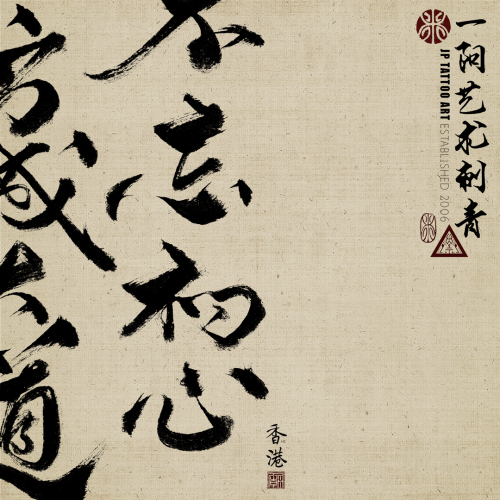 一阳艺术刺青
JP TATTOO ART ESTABLISHED 2006
不忘初心
方成大道
香港